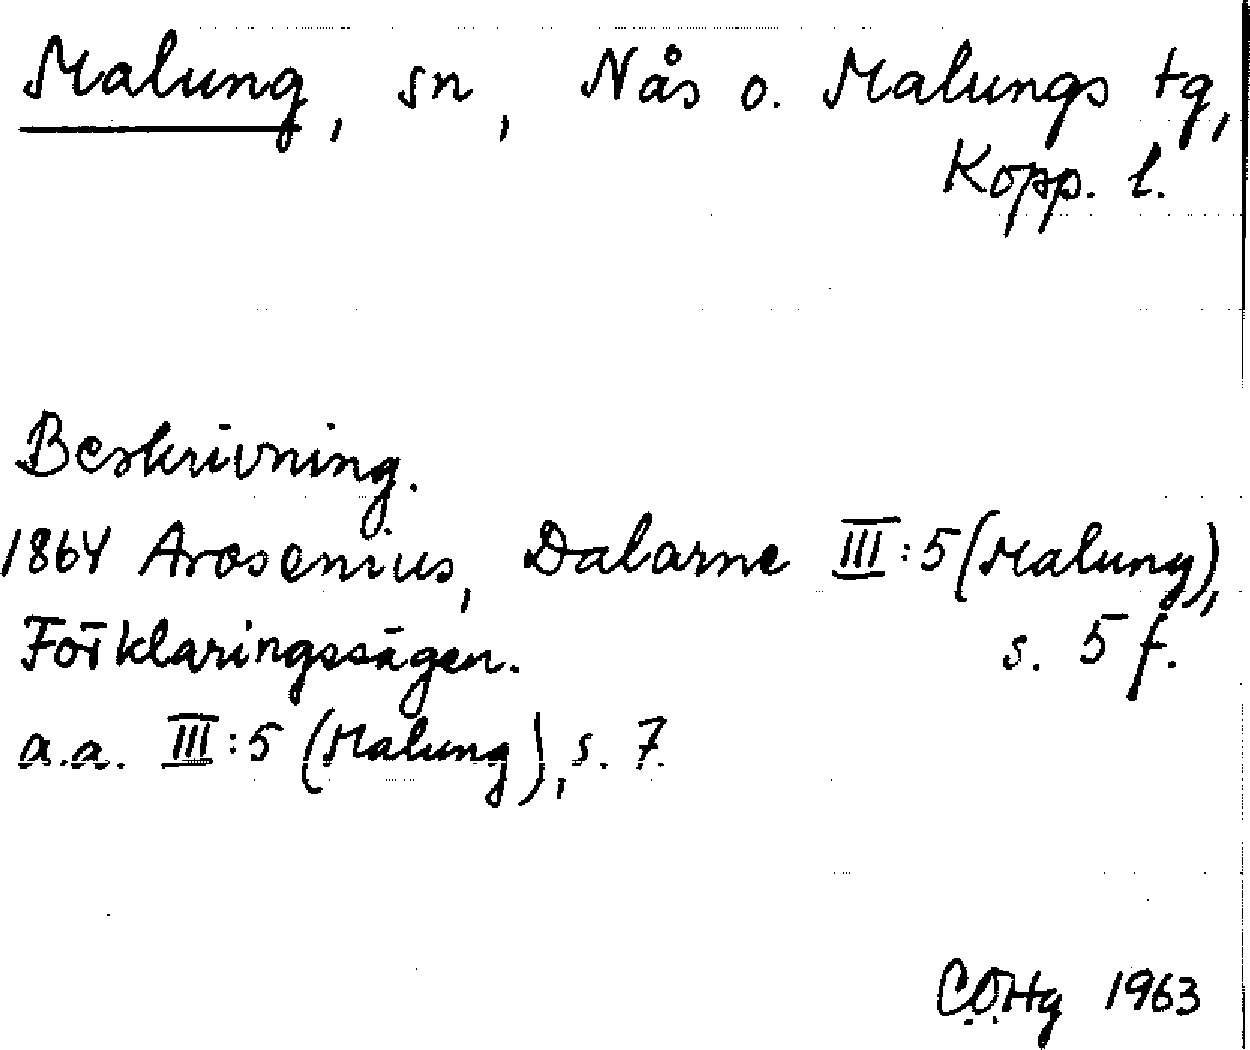 Malung, sn, Nås o. Malungs tg,
Kopp. l.
Beskrivning.
1864 Arosenius, Dalarne III:5 (Malung),
s. 5 f.
Förklaringssägen.
a.a. III:5 (Malung), s. 7.
C.O.Hg 1963